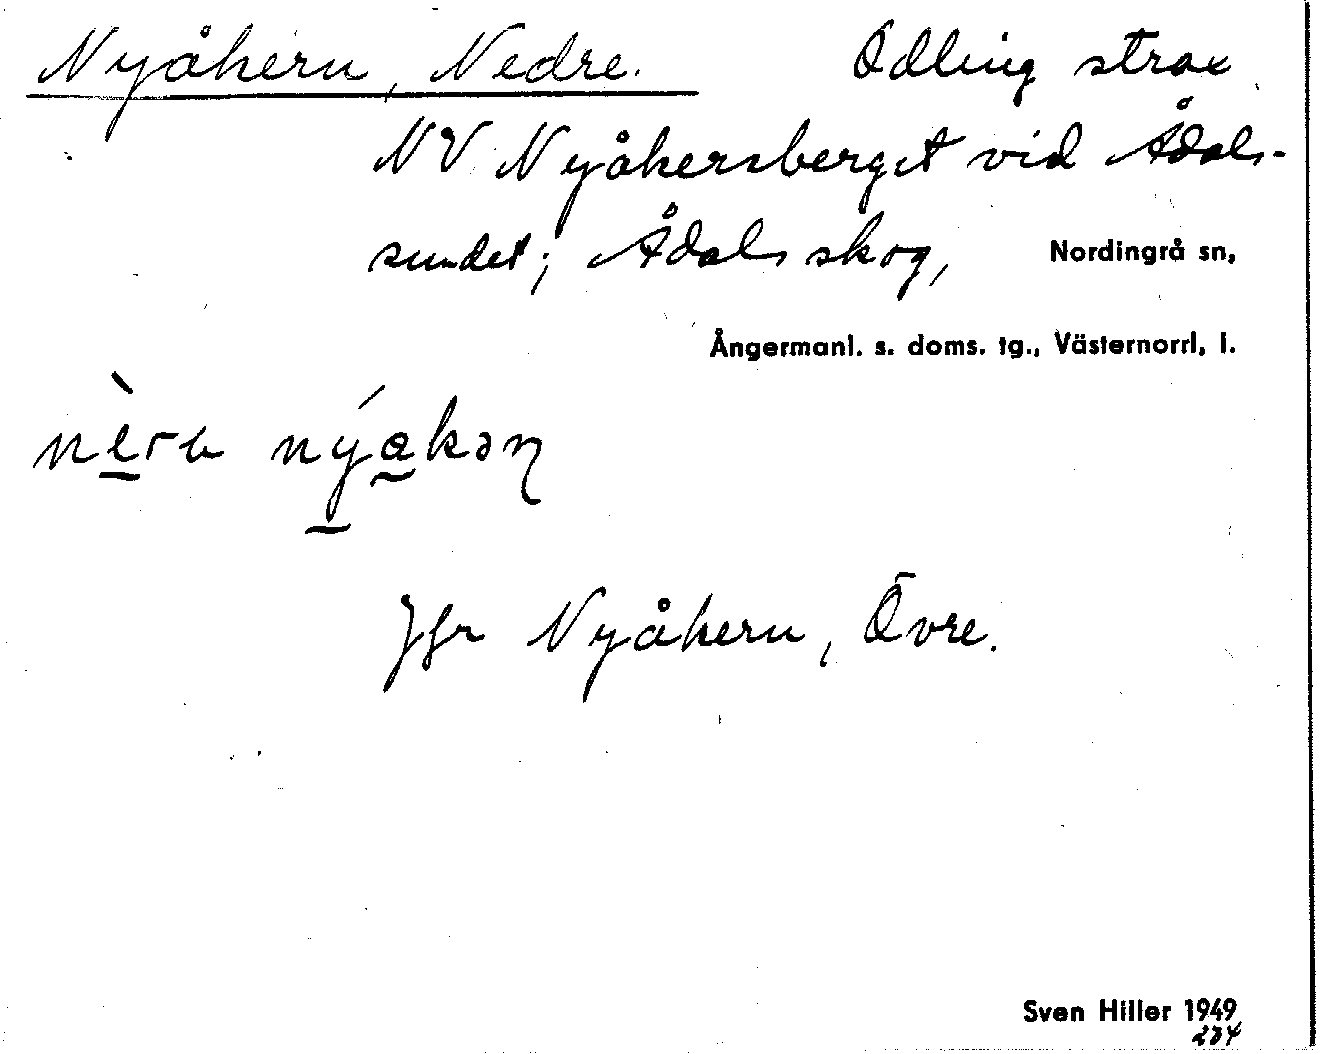 Nyåkern, Nedre. Odling strax
NV Nyåkersberget vid Ådals-
sundet; Ådals skog, Nordingrå sn,
Ångermanl. s. doms. tg., Västernorrl. l.
Jfr Nyåkern, Övre.
Sven Hiller 1949
234